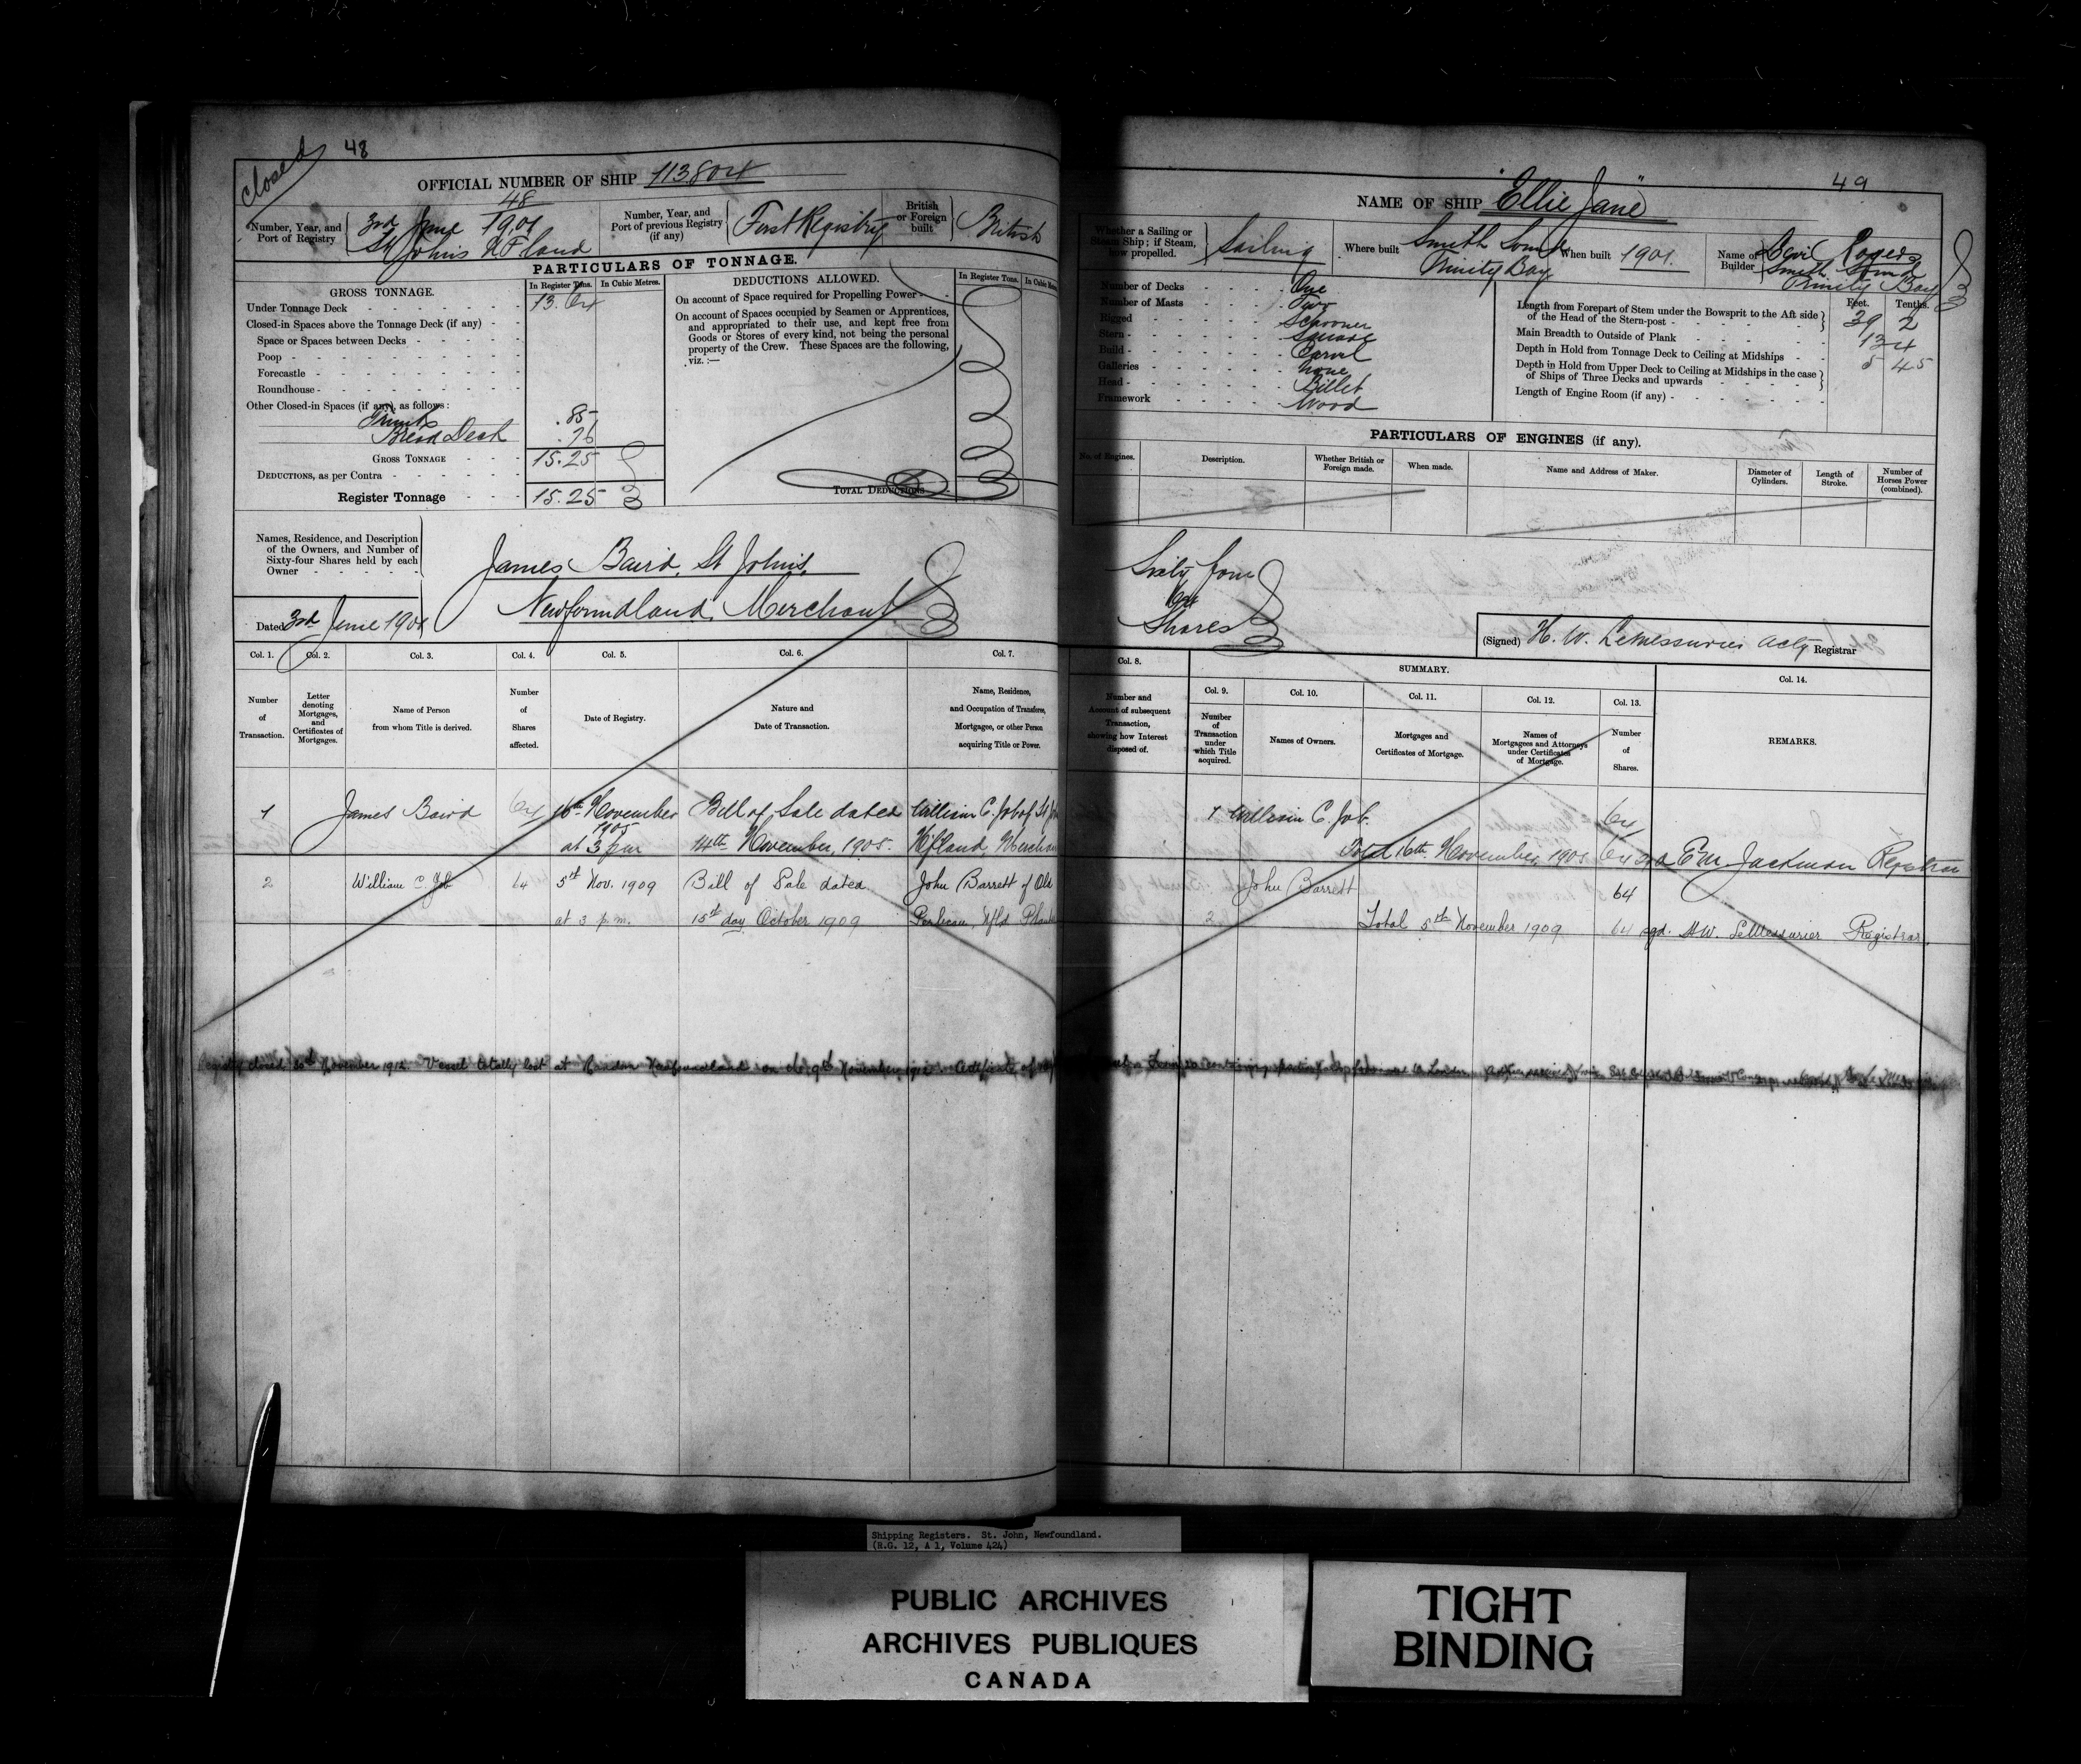 closed
48
OFFICIAL NUMBER OF SHIP 113.804
Number, Year, and Port of Registry
48
3rd June 1901
St Johns N F.land
Number, Year, and Port of previous Registry (if any)
First Registry
British or Foreign built
British
PARTICULARS OF TONNAGE.
GROSS TONNAGE.
In Register Tons.
In Cubic Metres.
Under Tonnage Deck 13.64
Closed-in Spaces above the Tonnage Deck (if any)
Space or Spaces between Decks
Poop
Forecastle
Roundhouse
Other Closed-in Spaces (if any), as follows:
Trunks .85
Break Deck .76
GROSS TONNAGE 15.25
DEDUCTIONS, as per Contra
Register Tonnage 15.25
DEDUCTIONS ALLOWED.
In Register Tons.
On account of Space required for Propelling Power
On account of Spaces occupied by Seamen or Apprentices,
and appropriated to their use, and kept free from
Goods or Stores of every kind, not being the personal
property of the Crew. These Spaces are the following,
viz.:—
TOTAL DEDUCTIONS
Names, Residence, and Description
of the Owners, and Number of
Sixty-four Shares held by each
Owner
James Baird, St Johns,
Newfoundland, Merchant
Dated 3rd June 1901
Col. 1.
Col. 2.
Col. 3.
Col. 4.
Col. 5.
Col. 6.
Col. 7.
Number of Transaction.
Letter denoting Mortgages, and Certificates of Mortgages.
Name of Person from whom Title is derived.
Number of Shares affected.
Date of Registry.
Nature and Date of Transaction.
Name, Residence, and Occupation of Transferee, Mortgagee, or other Person acquiring Title or Power.
1 James Baird 64 16th November Bill of Sale dated William C. Job of St
1905
at 3 pm 14th November, 1905. Nfland,
2 William C. Job 64 5th Nov. 1909 Bill of Sale dated John Barrett of Old
at 3 p.m. 15th day October 1909 Perlican, Nfld
Registry closed 30th November 1912. Vessel totally lost at Newfoundland on the 9th November, 1912. Certificate of
49
NAME OF SHIP "Ellie Jane"
Whether a Sailing or Steam Ship; if Steam, how propelled.
Sailing
Where built
Smith Sound
Trinity Bay
When built 1901.
Name of Builder
Levi Rogers
Smith Sound
Trinity Bay
Number of Decks One
Number of Masts Two
Rigged Schooner
Stern Square
Build Carvel
Galleries None
Head Billet
Framework Wood
Feet. Tenths.
Length from Forepart of Stem under the Bowsprit to the Aft side
of the Head of the Stern-post 39 2
Main Breadth to Outside of Plank 13 4
Depth in Hold from Tonnage Deck to Ceiling at Midships 5 45
Depth in Hold from Upper Deck to Ceiling at Midships in the case
of Ships of Three Decks and upwards
Length of Engine Room (if any)
PARTICULARS OF ENGINES (if any).
No. of Engines.
Description.
Whether British or Foreign made.
When made.
Name and Address of Maker.
Diameter of Cylinders.
Length of Stroke.
Number of Horses Power (combined).
Sixty four
64
Shares
(Signed) H. W. LeMessurier Actg Registrar
Col. 8.
SUMMARY.
Col. 9.
Col. 10.
Col. 11.
Col. 12.
Col. 13.
Col. 14.
Number and Account of subsequent Transaction, showing how Interest disposed of.
Number of Transaction under which Title acquired.
Names of Owners.
Mortgages and Certificates of Mortgage.
Names of Mortgagees and Attorneys under Certificates of Mortgage.
Number of Shares.
REMARKS.
1 William C. Job. 64
Total 16th November, 1905 64 sgd E M Jackman Registrar
John Barrett 64
2 Total 5th November 1909 64 sgd. H W. LeMessurier Registrar
Shipping Registers. St. John, Newfoundland.
(R.G. 12, A 1, Volume 424)
PUBLIC ARCHIVES
ARCHIVES PUBLIQUES
CANADA
TIGHT
BINDING